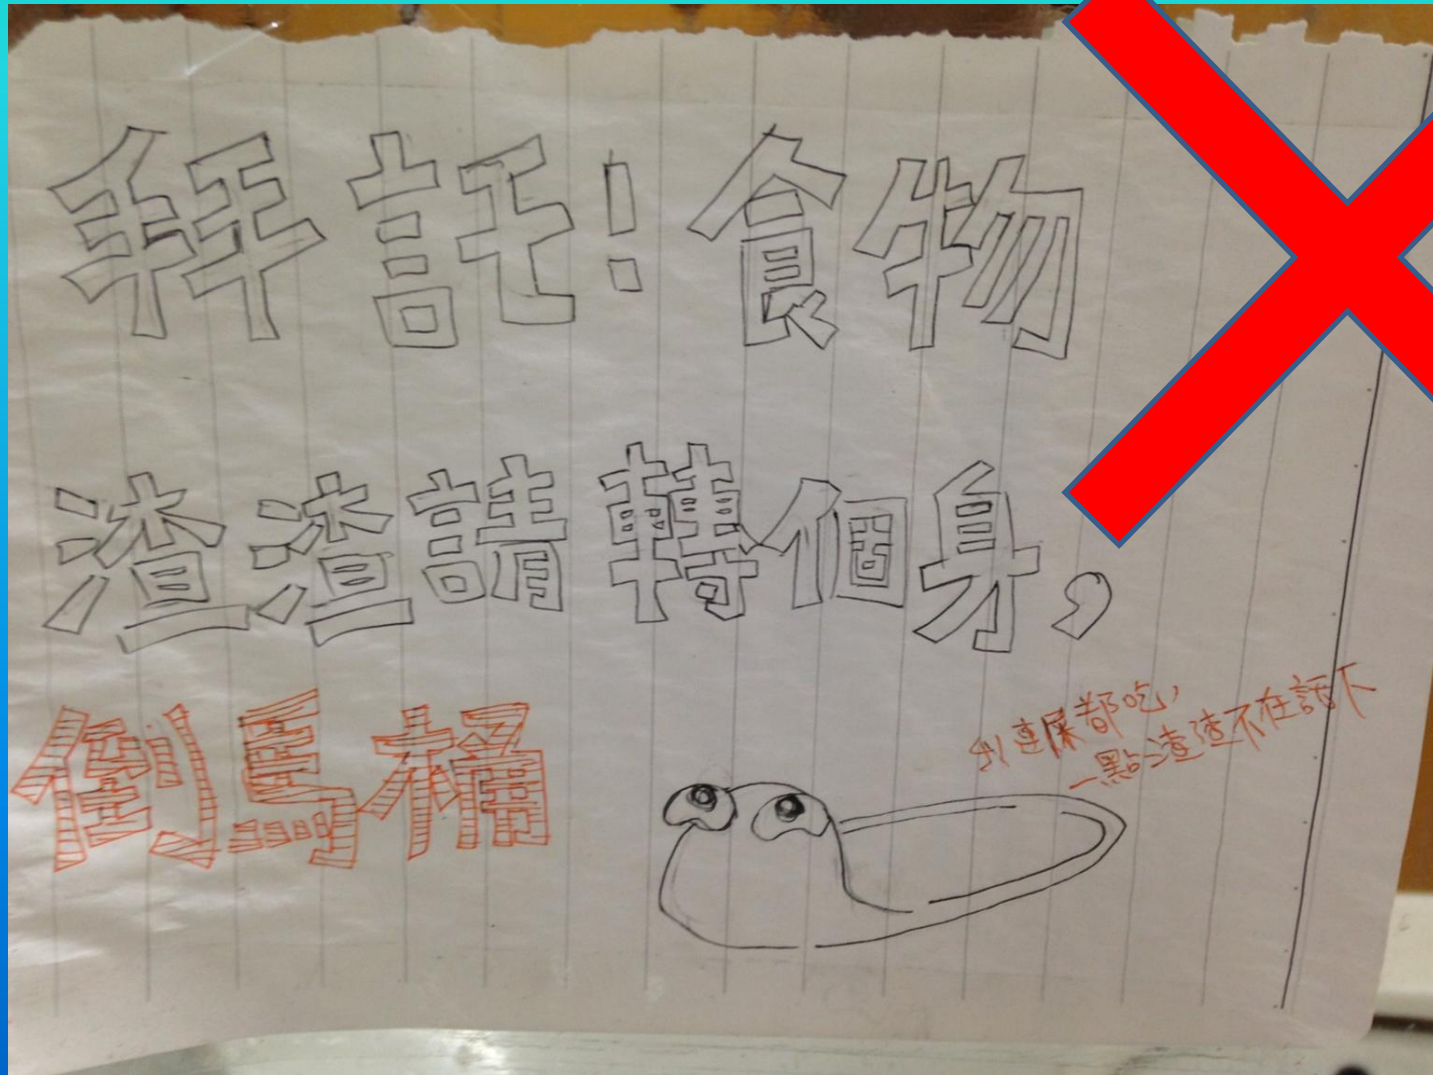 拜託!食物
渣渣請轉個身,
倒馬桶
我連屎都吃,
一點渣渣不在話下